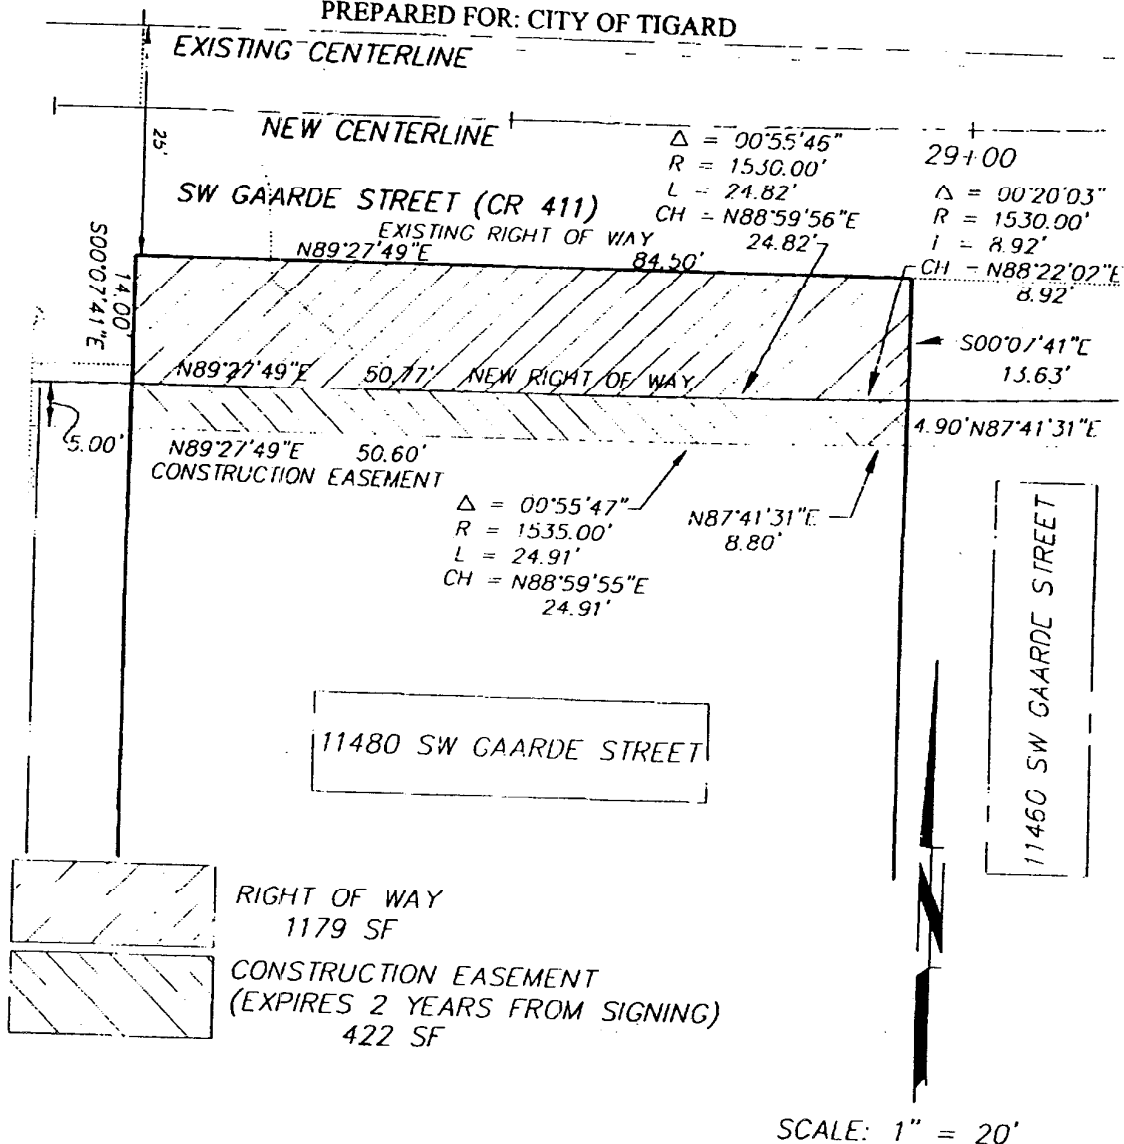 PREPARED FOR: CITY OF TIGARD
EXISTING CENTERLINE
NEW CENTERLINE
25'
29+00
Δ = 00°55'46"
R = 1530.00'
L = 24.82'
CH = N88°59'56"E
24.82'
Δ = 00°20'03"
R = 1530.00'
l = 8.92'
CH = N88°22'02"E
8.92'
SW GAARDE STREET (CR 411)
EXISTING RIGHT OF WAY
N89°27'49"E 84.50'
S00°07'41"E
14.00'
S00°07'41"E
13.63'
N89°27'49"E 50.77' NEW RIGHT OF WAY
5.00'
4.90' N87°41'31"E
N89°27'49"E 50.60'
CONSTRUCTION EASEMENT
Δ = 00°55'47"
R = 1535.00'
L = 24.91'
CH = N88°59'55"E
24.91'
N87°41'31"E
8.80'
11480 SW GAARDE STREET
11460 SW GAARDE STREET
RIGHT OF WAY
1179 SF
CONSTRUCTION EASEMENT
(EXPIRES 2 YEARS FROM SIGNING)
422 SF
N
SCALE: 1" = 20'